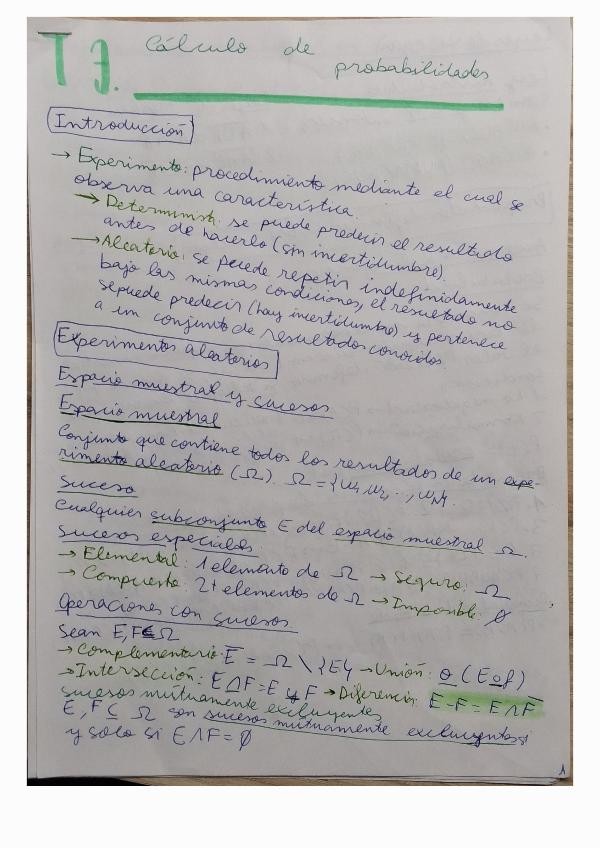 T 3. Cálculo de
probabilidades
Introducción
→ Experimento: procedimiento mediante el cual se
observa una característica.
→ Determinist.: se puede predecir el resultado
antes de hacerlo (sin incertidumbre).
→ Aleatorio: se puede repetir indefinidamente
bajo las mismas condiciones, el resultado no
se puede predecir (hay incertidumbre) y pertenece
a un conjunto de resultados conocidos
Experimentos aleatorios
Espacio muestral y sucesos
Espacio muestral
Conjunto que contiene todos los resultados de un expe-
rimento aleatorio (Ω). Ω = {w₁, w₂, ..., wₙ}.
Suceso
Cualquier subconjunto E del espacio muestral Ω.
Sucesos especiales
→ Elemental: 1 elemento de Ω → Seguro: Ω
→ Compuesto: 2+ elementos de Ω → Imposible: ∅
Operaciones con sucesos
Sean E, F ⊆ Ω
→ Complementario: E̅ = Ω \ {E} → Unión: o (E o F)
→ Intersección: E ∩ F = E y F → Diferencia: E - F = E ∩ F̅
sucesos mutuamente excluyentes
E, F ⊆ Ω son sucesos mutuamente excluyentes si
y solo si E ∩ F = ∅
1